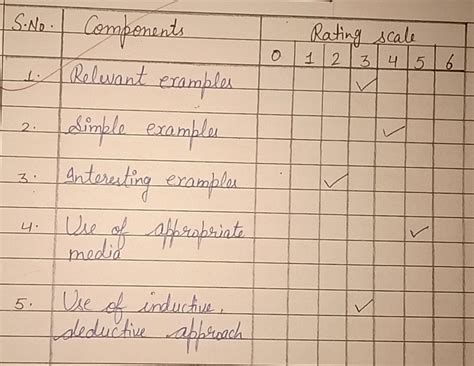 S.No. Components Rating scale
0 1 2 3 4 5 6
1. Relevant examples ✓
2. Simple examples ✓
3. Interesting examples ✓
4. Use of appropriate ✓
media
5. Use of inductive, ✓
deductive approach